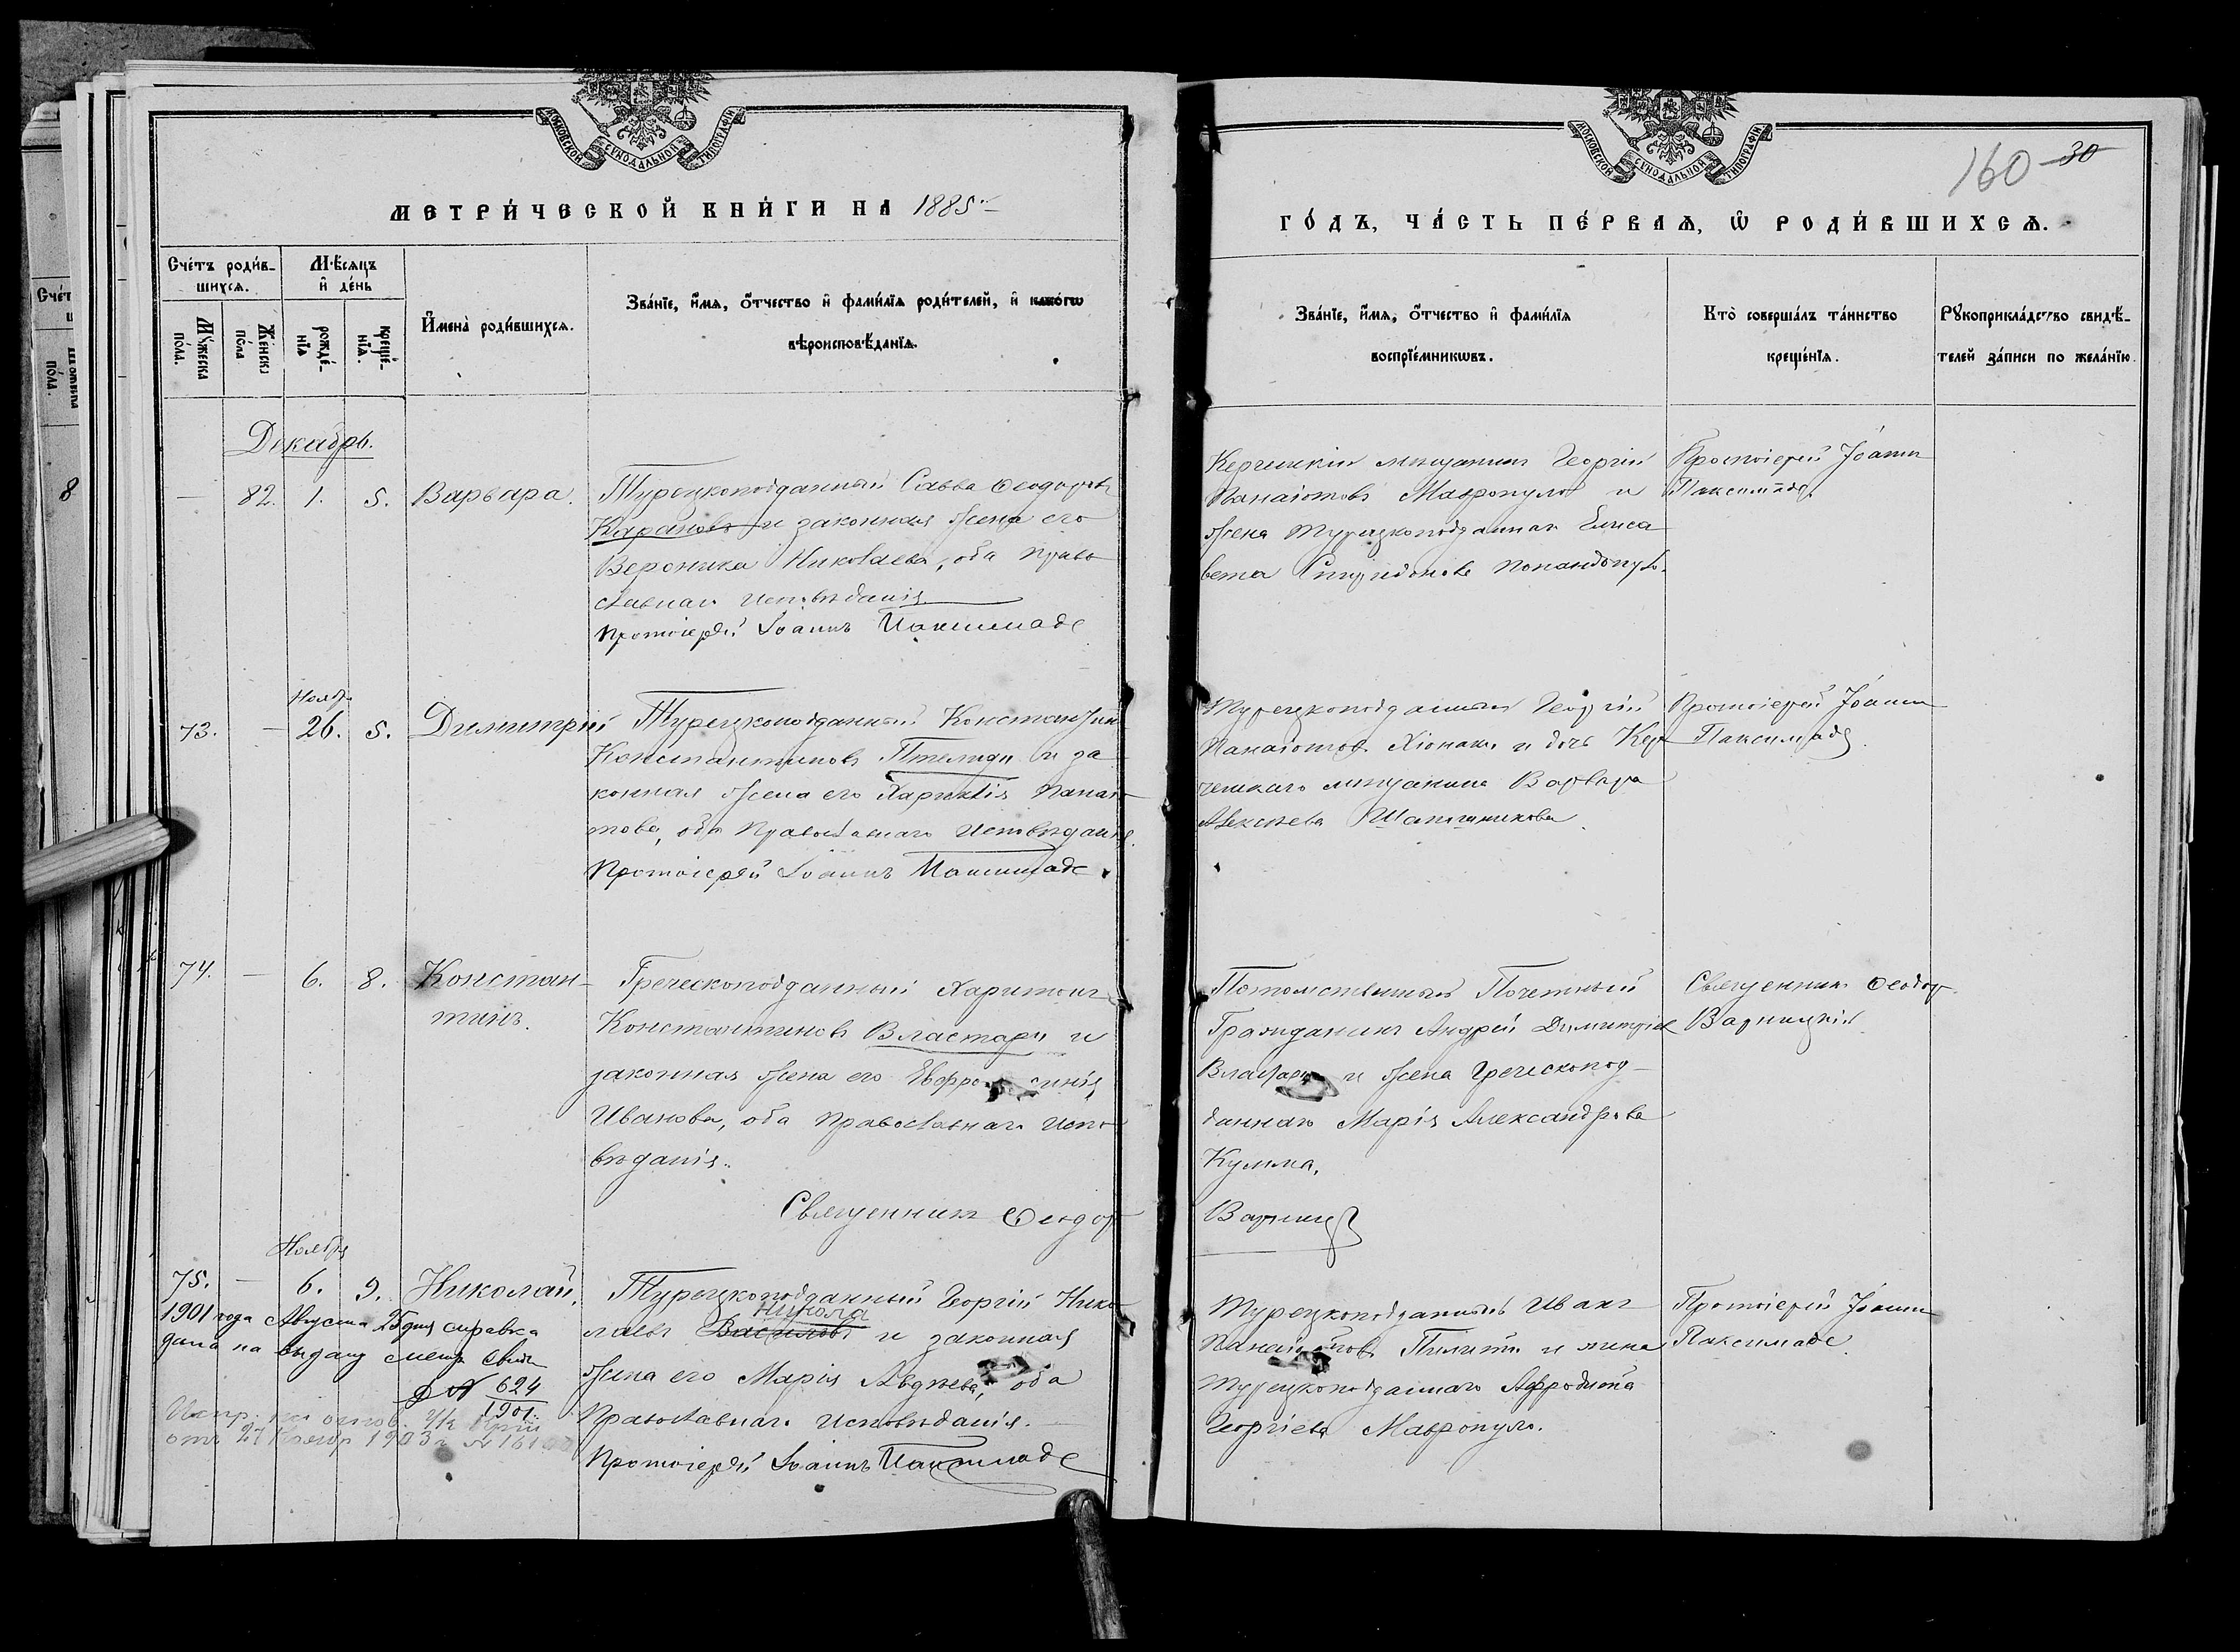 МОСКОВСКОЙ СУНОДАЛЬНОЙ ТИПОГРАФІИ
МЕТРИ́ЧЕСКОЙ КНИ́ГИ НА 1885
Сче́тъ роди́в-
шихсѧ.
Мѣ́сѧцъ
и҆ де́нь
Мꙋ́жеска
по́ла.
Же́нска
по́ла
рожде́-
нїѧ
креще́-
нїѧ.
И҆мена̀ роди́вшихсѧ.
Зва́нїе, и҆́мѧ, ѻ҆́тчество и҆ фами́лїѧ роди́телей, и҆ како́гѡ
вѣроисповѣ́данїѧ.
Декабрь.
— 82. 1. 5. Варвара.
Турецкоподданный Савва Ѳеодоровъ
Карановъ и законная жена его
Вероника Николаева, оба право
славнаго исповѣданія
Протоіерей Іоаннъ Паксимаде
Ноябр.
73. — 26. 5. Димитрій
Турецкоподданный Константинъ
Константиновъ Птемиди и за
конная жена его Хариклія Панаіо
това, оба Православнаго Исповѣданія.
Протоіерей Іоаннъ Паксимаде.
74. — 6. 8. Констан-
тинъ.
Греческоподданный Харитонъ
Константиновъ Властари и
законная жена его Евфросинія
Иванова, оба православнаго испо
вѣданія.
Священникъ Ѳеодоръ
Ноября
75. — 6. 9. Николай.
Турецкоподданный Георгій Нико
Никола
лаевъ Василовъ и законная
жена его Марія Авдѣева, оба
Православнаго исповѣданія.
Протоіерей Іоаннъ Паксимаде
1901 года Августа 25 дня справка
дана на выдачу метр. свид.
№ 624
1901.
отъ 27 Ноябр 1903 г. №
160 30
МОСКОВСКОЙ СУНОДАЛЬНОЙ ТИПОГРАФІИ
ГО́ДЪ, ЧА́СТЬ ПЕ́РВАѦ, Ѡ҆ РОДИ́ВШИХСѦ.
Зва́нїе, и҆́мѧ, ѻ҆́тчество и҆ фами́лїѧ
воспрїе́мникѡвъ.
Кто̀ соверша́лъ та́инство
креще́нїѧ.
Рꙋкоприкла́дство свидѣ́-
телей за́писи по жела́нїю.
Керченскій мѣщанинъ Георгій
Панаіотовъ Мавропуло и
жена турецкоподданнаго Елиса
вета Спиридонова Попандопуло.
Протоіерей Іоаннъ
Паксимаде.
Турецкоподданный Георгій
Панаіотовъ Хіонаки и дочь Кер
ченскаго мѣщанина Варвара
Алексѣева Шапошникова
Протоіерей Іоаннъ
Паксимаде.
Потомственный Почетный
Гражданинъ Андрей Димитріев
Властари и жена Греческопод-
даннаго Марія Александрова
Кумма.
Варницкій
Священникъ Ѳеодоръ
Варницкій
Турецкоподданный Иванъ
Панаіотовъ и жена
турецкоподданнаго Афродита
Георгіева Мавропуло.
Протоіерей Іоаннъ
Паксимаде.